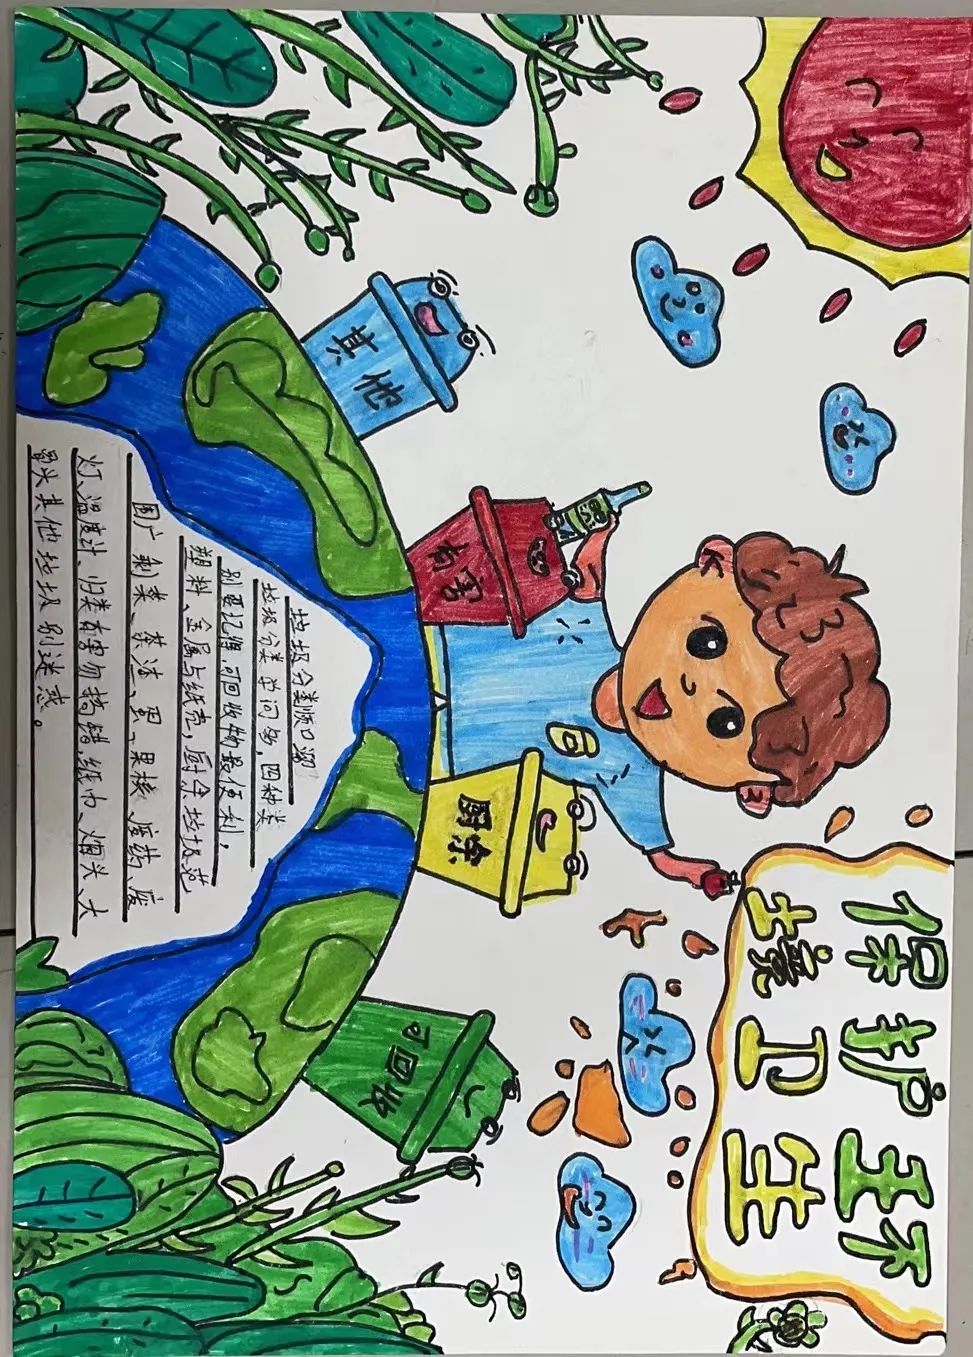 保护环
境卫生
其他
有害
厨余
可回收
垃圾分类顺口溜
垃圾分类学问多,四种类
别要记准,可回收物最便利,
塑料、金属与纸壳,厨余垃圾范
围广 剩菜、菜渣、蛋、果核、废药、废
灯、温度计、归类有害勿搞错,纸巾、烟头、大
骨头其他垃圾别迷惑。